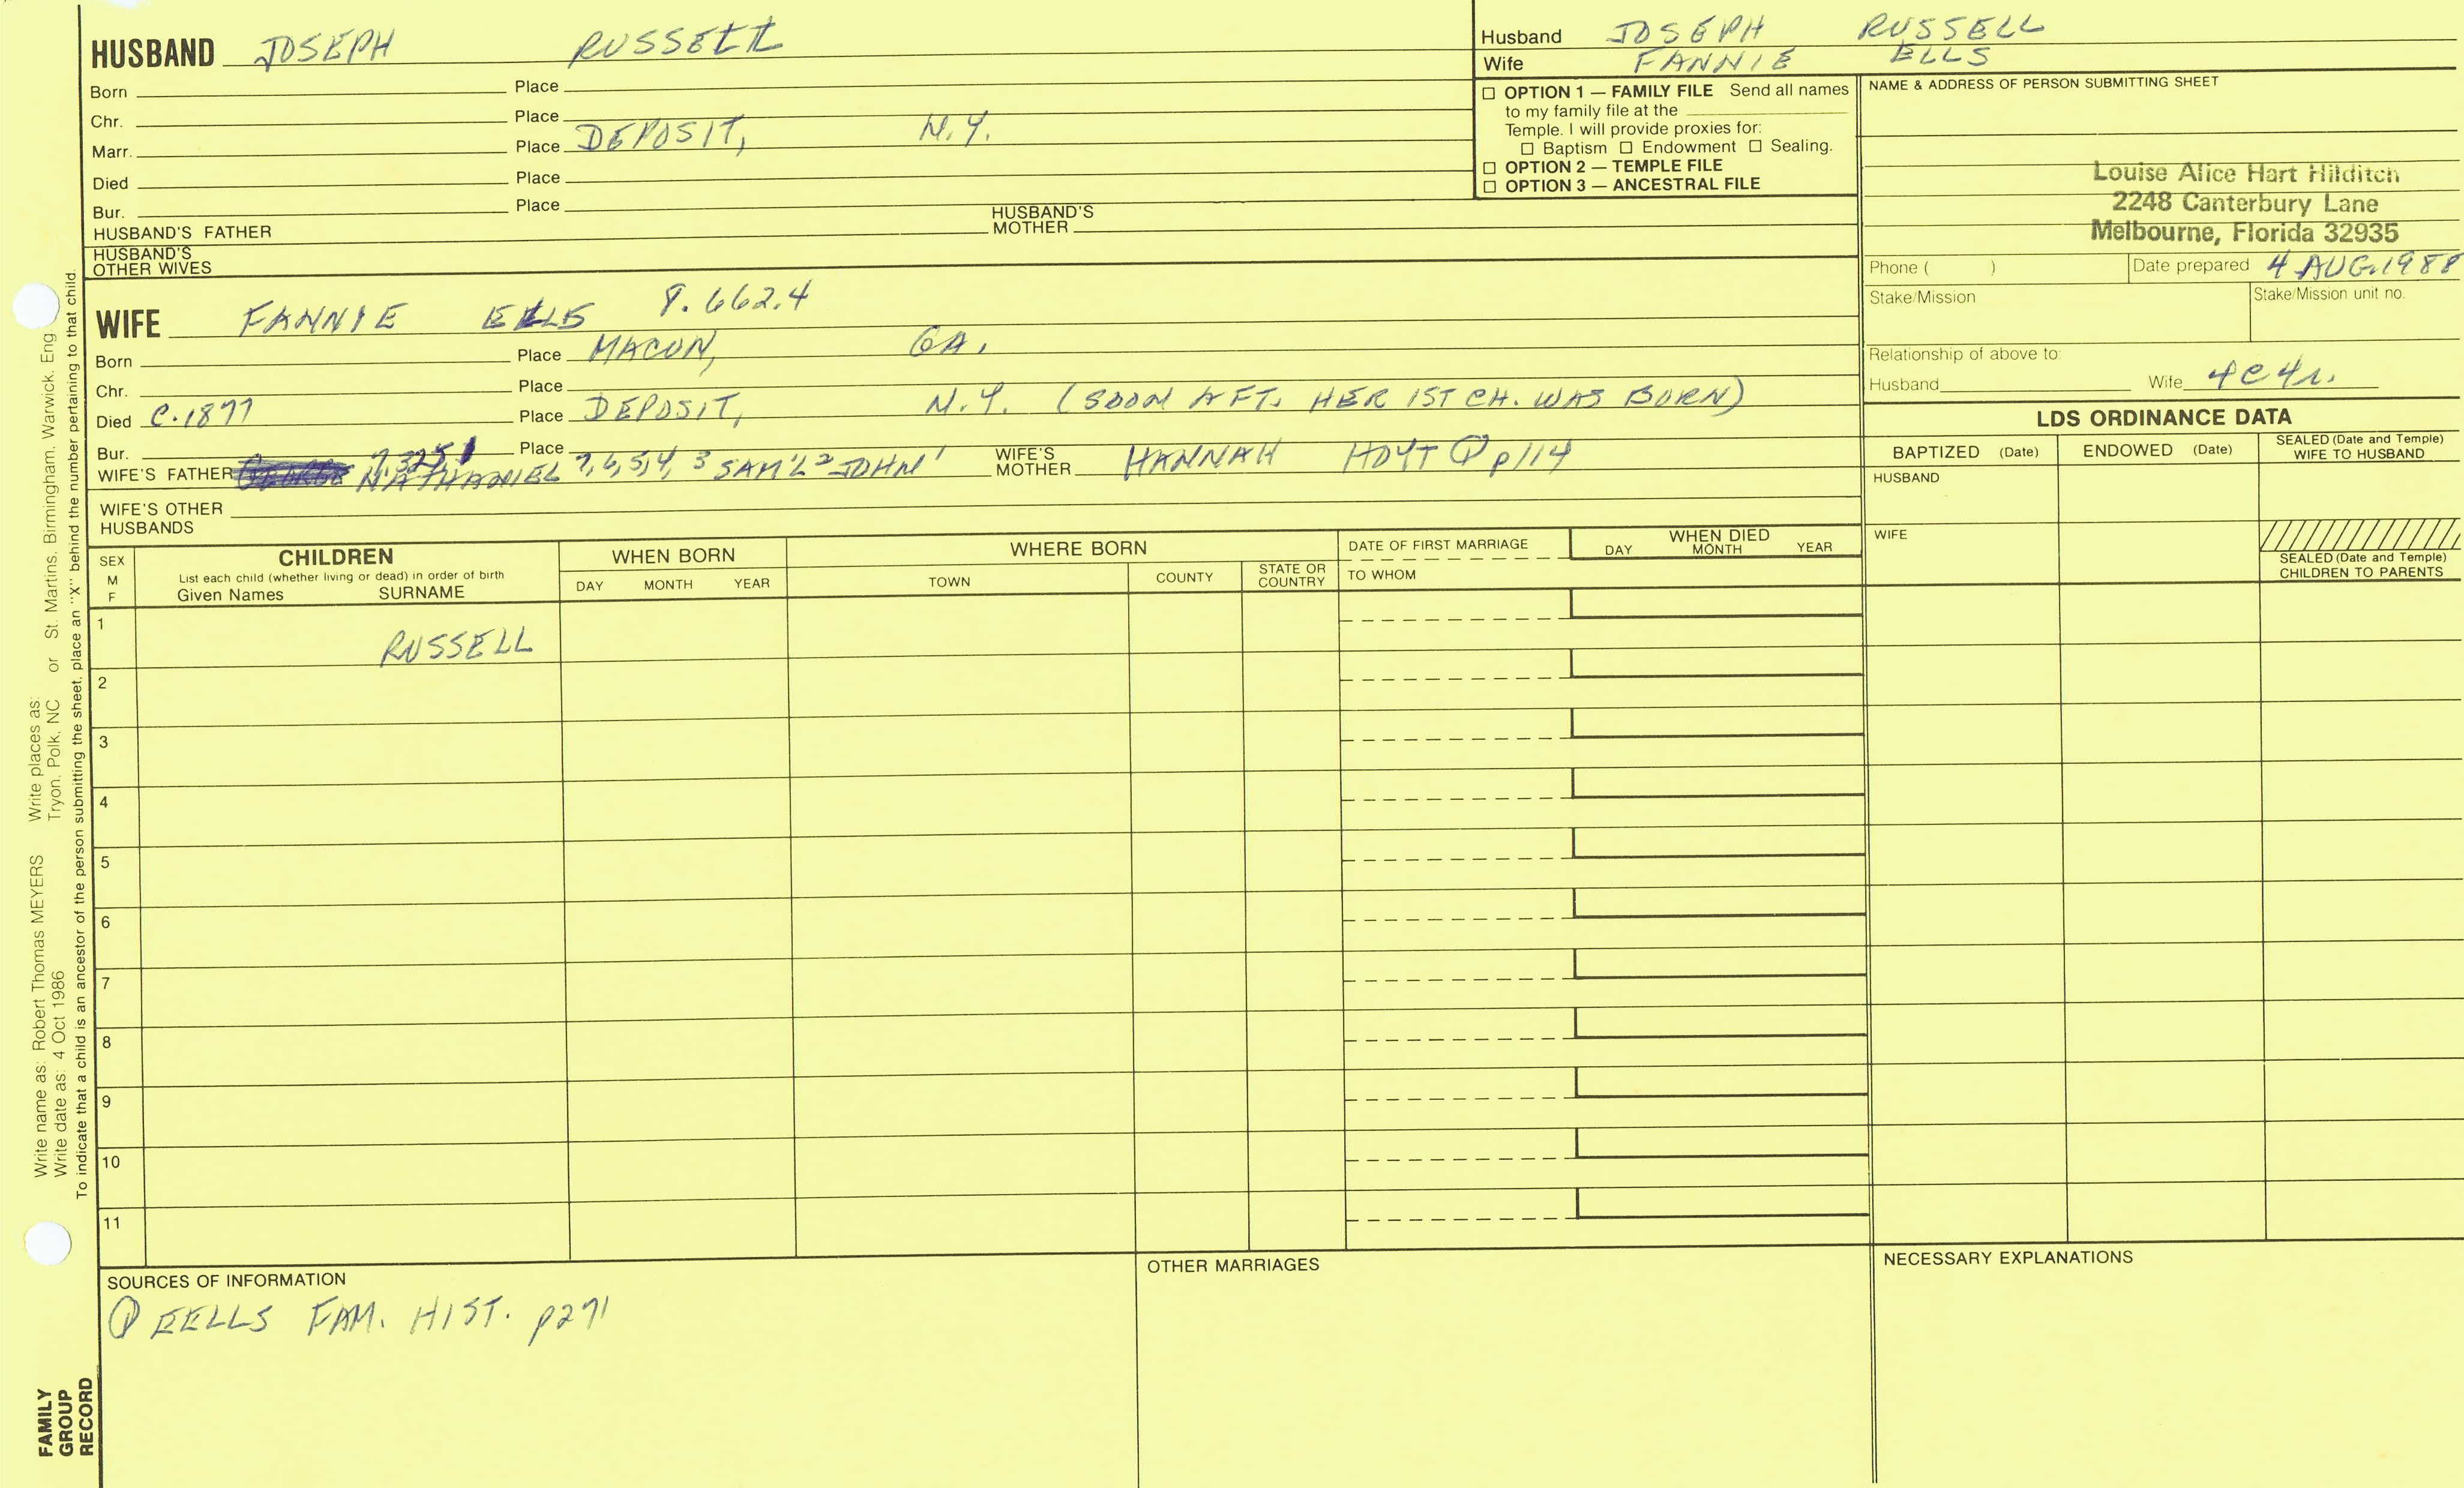 HUSBAND JOSEPH RUSSELL
Born Place
Chr. Place
Marr. Place DEPOSIT, N.Y.
Died Place
Bur. Place
HUSBAND'S FATHER HUSBAND'S MOTHER
HUSBAND'S OTHER WIVES
Husband JOSEPH RUSSELL
Wife FANNIE ELLS
☐ OPTION 1 — FAMILY FILE Send all names
to my family file at the
Temple. I will provide proxies for:
☐ Baptism ☐ Endowment ☐ Sealing.
☐ OPTION 2 — TEMPLE FILE
☐ OPTION 3 — ANCESTRAL FILE
NAME & ADDRESS OF PERSON SUBMITTING SHEET
Louise Alice Hart Hilditch
2248 Canterbury Lane
Melbourne, Florida 32935
Phone ( ) Date prepared 4 AUG. 1988
Stake/Mission Stake/Mission unit no.
Relationship of above to:
Husband Wife 4C4r.
WIFE FANNIE ELLS 8.662.4
Born Place MACON, GA.
Chr. Place
Died C.1877 Place DEPOSIT, N.Y. (SOON AFT. HER 1ST CH. WAS BORN)
Bur. Place
7.325.1
WIFE'S FATHER NATHANIEL 7,6,5,4, 3 SAM'L 2 JOHN 1 WIFE'S MOTHER HANNAH HOYT Q p114
WIFE'S OTHER HUSBANDS
LDS ORDINANCE DATA
BAPTIZED (Date) ENDOWED (Date) SEALED (Date and Temple) WIFE TO HUSBAND
HUSBAND
WIFE
SEALED (Date and Temple) CHILDREN TO PARENTS
SEX M F
CHILDREN
List each child (whether living or dead) in order of birth
Given Names SURNAME
WHEN BORN
DAY MONTH YEAR
WHERE BORN
TOWN COUNTY STATE OR COUNTRY
DATE OF FIRST MARRIAGE
TO WHOM
WHEN DIED
DAY MONTH YEAR
1 RUSSELL
2
3
4
5
6
7
8
9
10
11
SOURCES OF INFORMATION
Q EELLS FAM. HIST. p271
OTHER MARRIAGES
NECESSARY EXPLANATIONS
Write name as: Robert Thomas MEYERS Write places as: St. Martins, Birmingham, Warwick, Eng
Write date as: 4 Oct 1986 Tryon, Polk, NC or
To indicate that a child is an ancestor of the person submitting the sheet, place an "X" behind the number pertaining to that child.
FAMILY
GROUP
RECORD